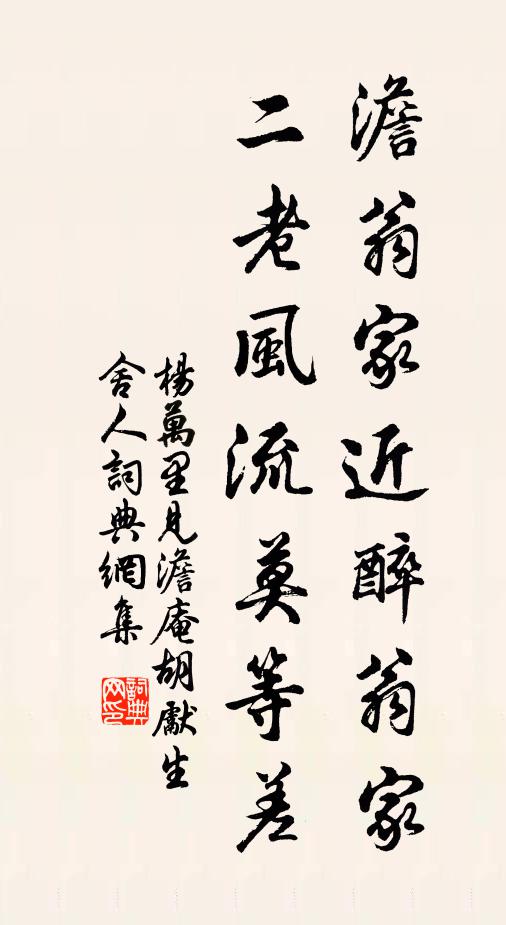 澹翁家近醉翁家
二老風流莫等差
楊萬里見澹庵胡獻生
舍人詞典網集
詞典网印